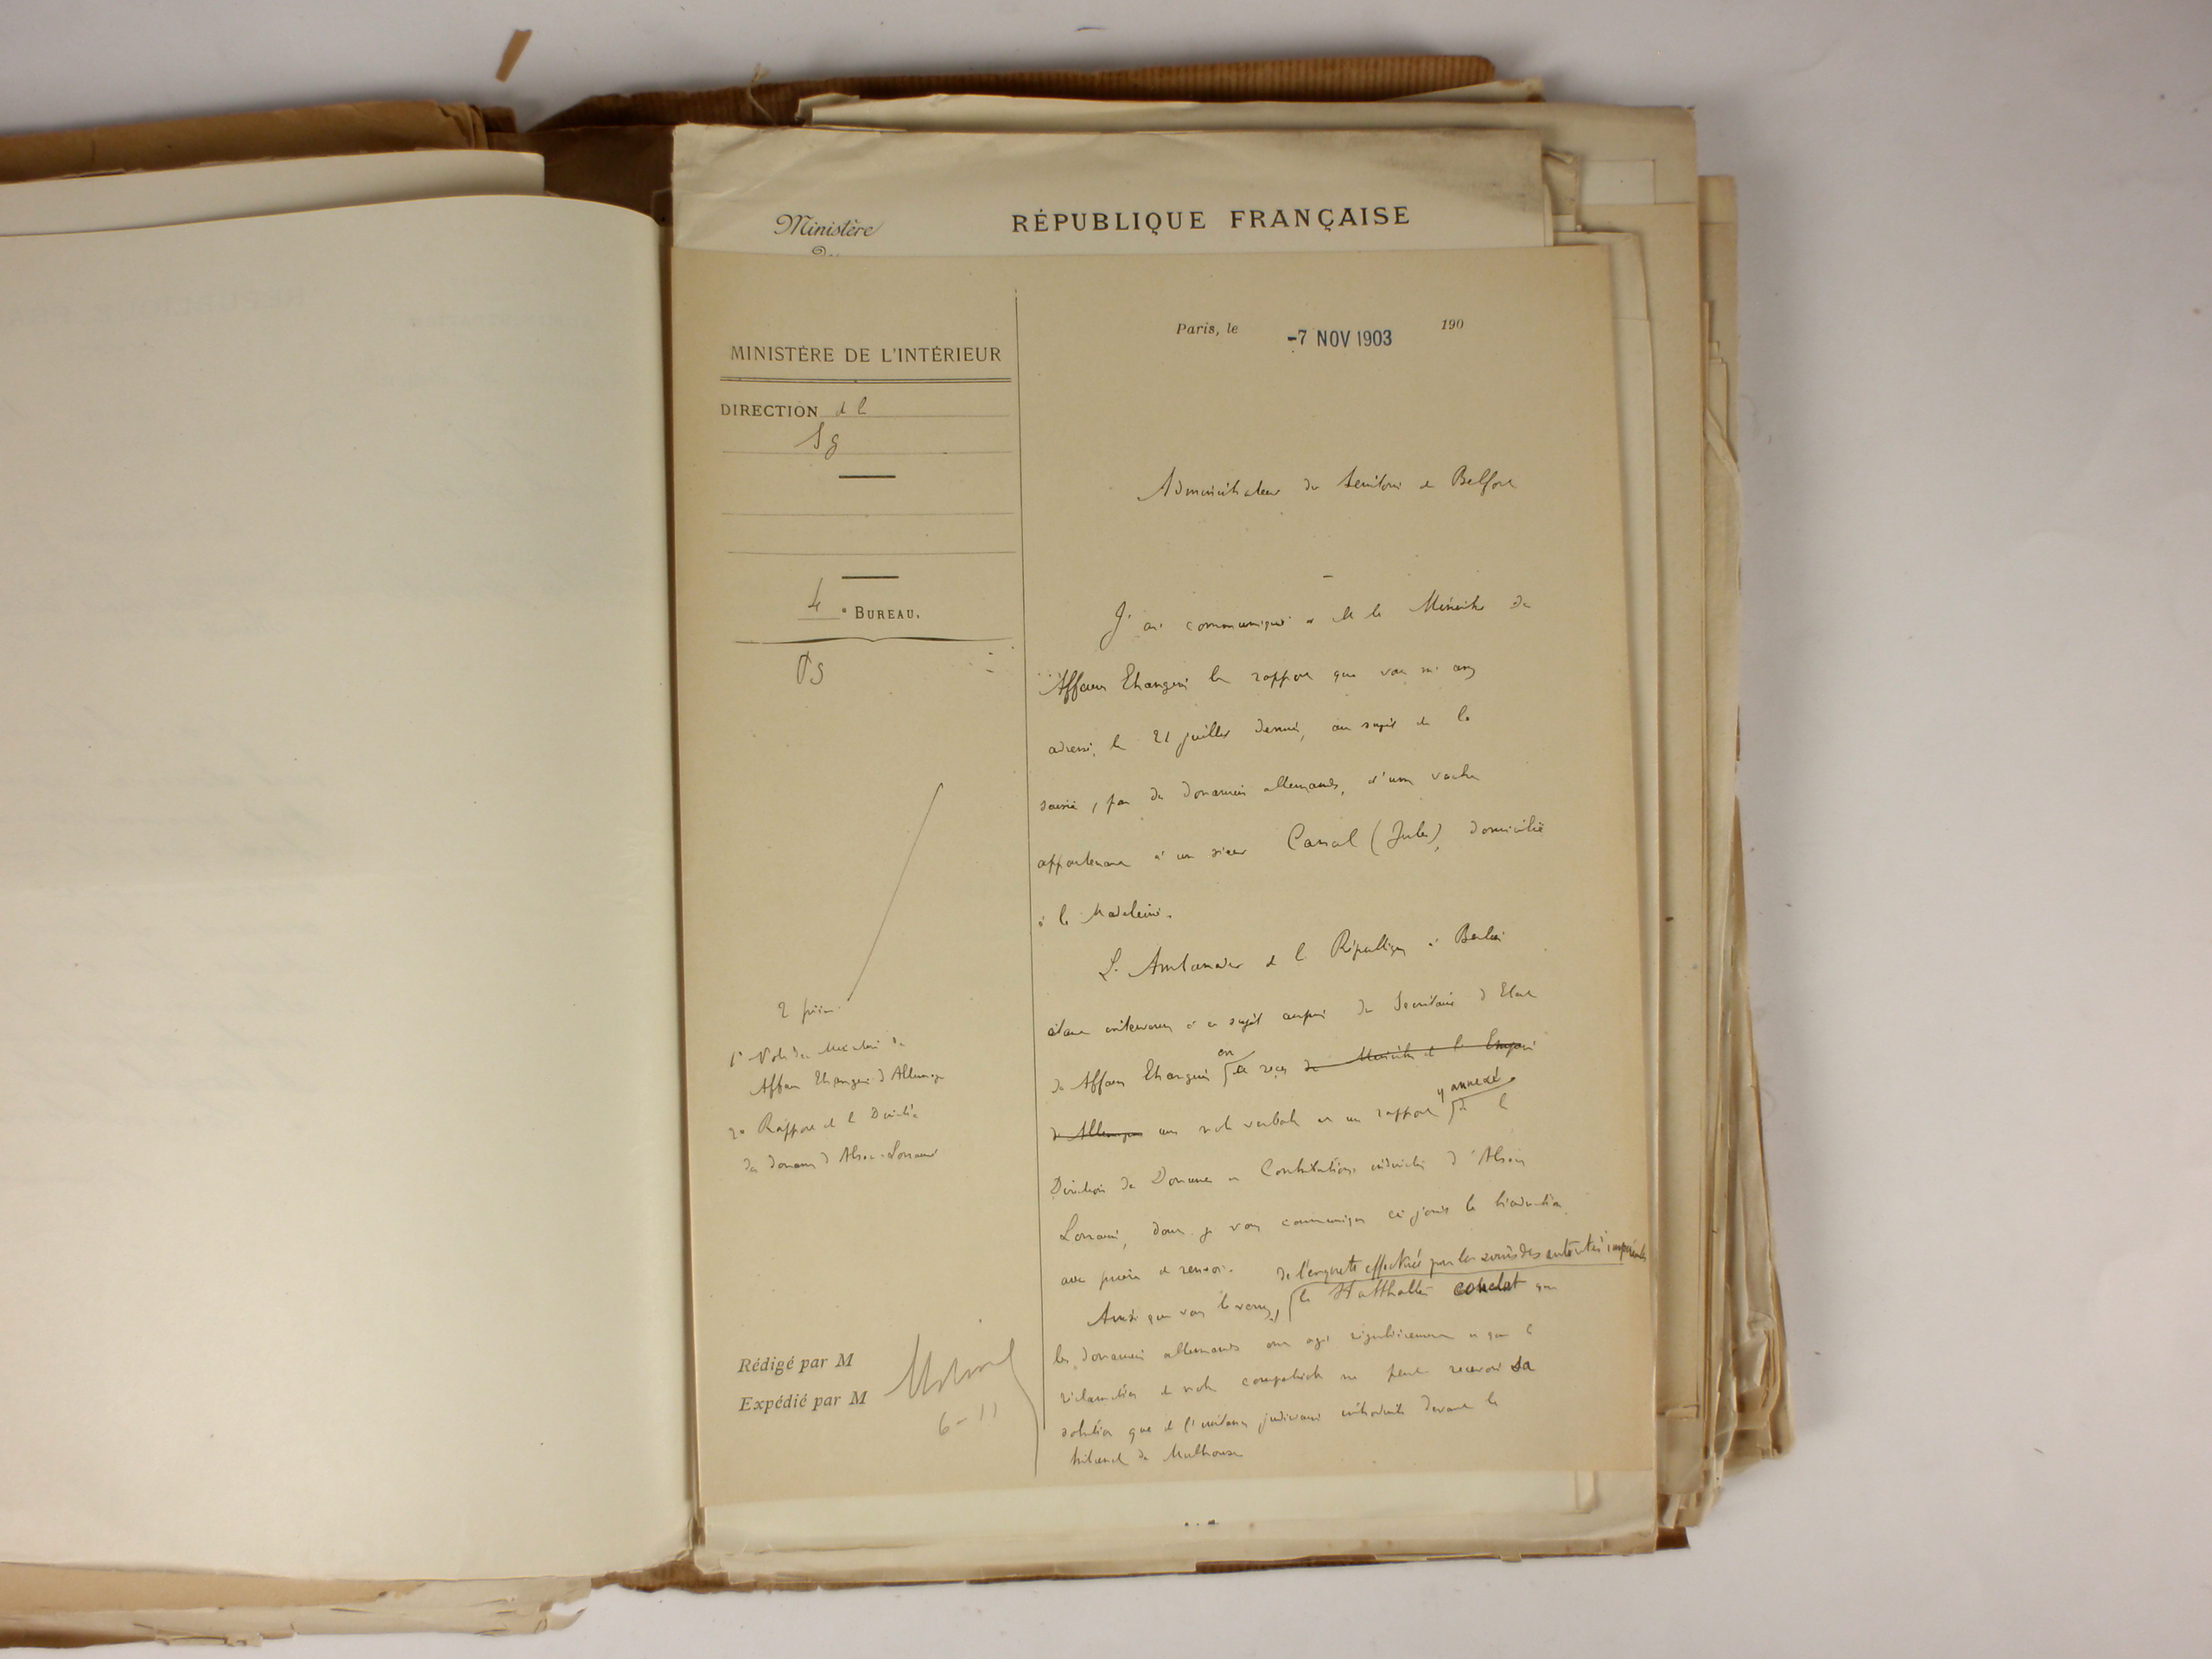 Ministère
RÉPUBLIQUE FRANÇAISE
MINISTÈRE DE L'INTÉRIEUR
DIRECTION de la
Sg
4e BUREAU.
PS
2 pièces
1° Note du Ministère des
Affaires Etrangères d'Allemagne
2° Rapport de la Direction
des douanes d'Alsace-Lorraine
Rédigé par M
Expédié par M
6-11
Paris, le -7 NOV 1903 190
Administrateur du Territoire de Belfort
J'ai communiqué à M. le Ministre des
Affaires Etrangères le rapport que vous m'avez
adressé, le 21 juillet dernier, au sujet de la
saisie, par des douaniers allemands, d'une vache
appartenant à un sieur Canal (Jules), domicilié
à la Madeleine.
L'Ambassadeur de la République à Berlin
étant intervenu à ce sujet auprès du Secrétaire d'Etat
des Affaires Etrangères en a reçu du Ministre de l'Empire
d'Allemagne une note verbale et un rapport y annexé de la
Direction des Douanes et Contributions indirectes d'Alsace
Lorraine, dont je vous communique ci-joint la traduction
avec prière de renvoi.
de l'enquête effectuée par les soins des autorités impériales
Ainsi que vous le verrez, le Statthalter conclut que
les douaniers allemands ont agi régulièrement et que la
réclamation de notre compatriote ne peut recevoir sa
solution que de l'instance judiciaire introduite devant le
tribunal de Mulhouse